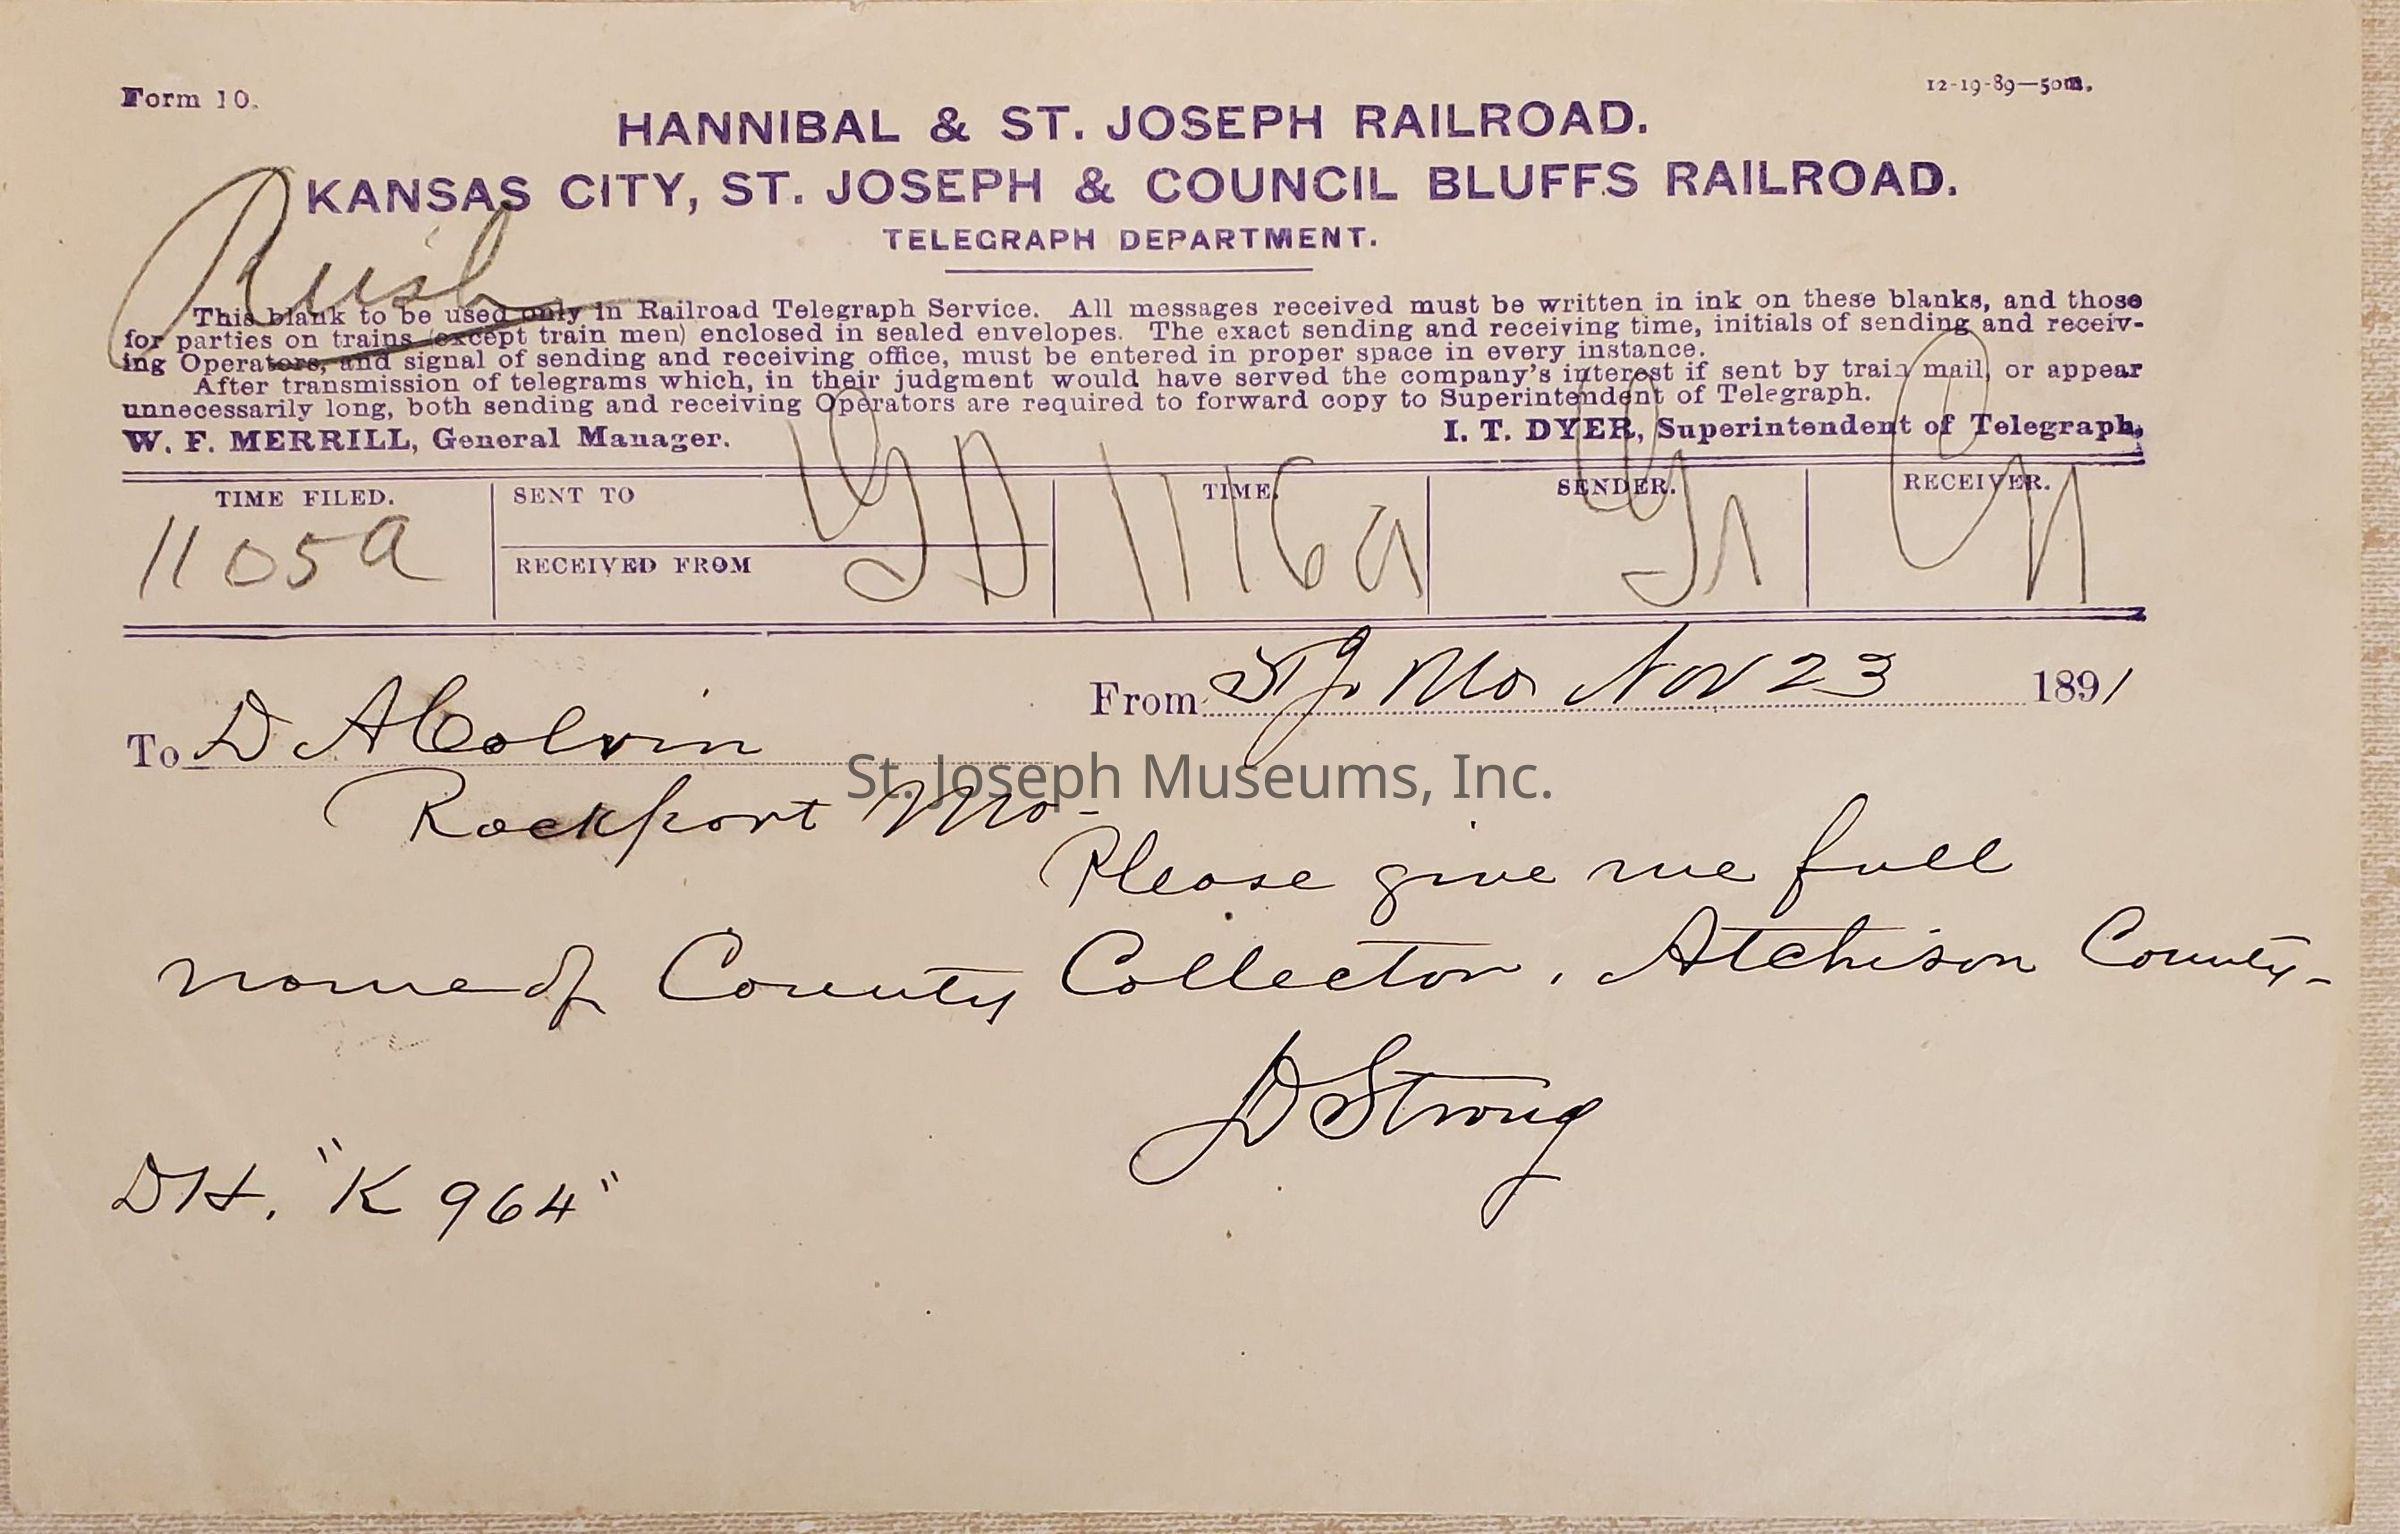 Form 10.
12-19-89—50m.
HANNIBAL & ST. JOSEPH RAILROAD.
KANSAS CITY, ST. JOSEPH & COUNCIL BLUFFS RAILROAD.
TELEGRAPH DEPARTMENT.
Rush
This blank to be used only in Railroad Telegraph Service. All messages received must be written in ink on these blanks, and those
for parties on trains (except train men) enclosed in sealed envelopes. The exact sending and receiving time, initials of sending and receiv-
ing Operators, and signal of sending and receiving office, must be entered in proper space in every instance.
After transmission of telegrams which, in their judgment would have served the company's interest if sent by train mail, or appear
unnecessarily long, both sending and receiving Operators are required to forward copy to Superintendent of Telegraph.
W. F. MERRILL, General Manager.
I. T. DYER, Superintendent of Telegraph.
TIME FILED. SENT TO TIME. SENDER. RECEIVER.
1105a 1116a
RECEIVED FROM
From St Jo Mo Nov 23 1891
To D A Colvin
St. Joseph Museums, Inc.
Rockport Mo-
Please give me full
name of County Collector, Atchison County-
D Strong
DH. "K 964"